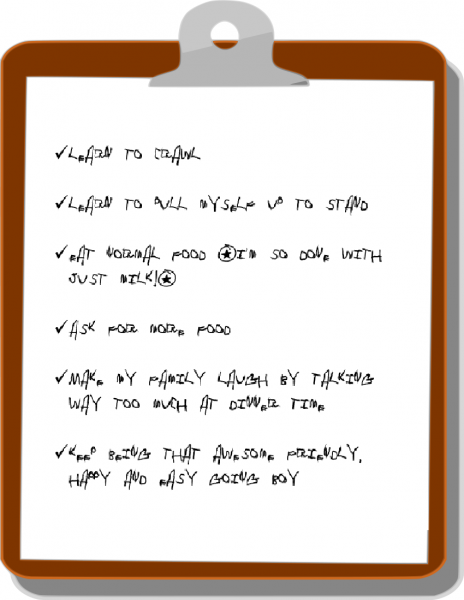 ✓LEARN TO CRAWL
✓LEARN TO PULL MYSELF UP TO STAND
✓EAT NORMAL FOOD ✪I'M SO DONE WITH
JUST MILK!✪
✓ASK FOR MORE FOOD
✓MAKE MY FAMILY LAUGH BY TALKING
WAY TOO MUCH AT DINNER TIME
✓KEEP BEING THAT AWESOME FRIENDLY,
HAPPY AND EASY GOING BOY